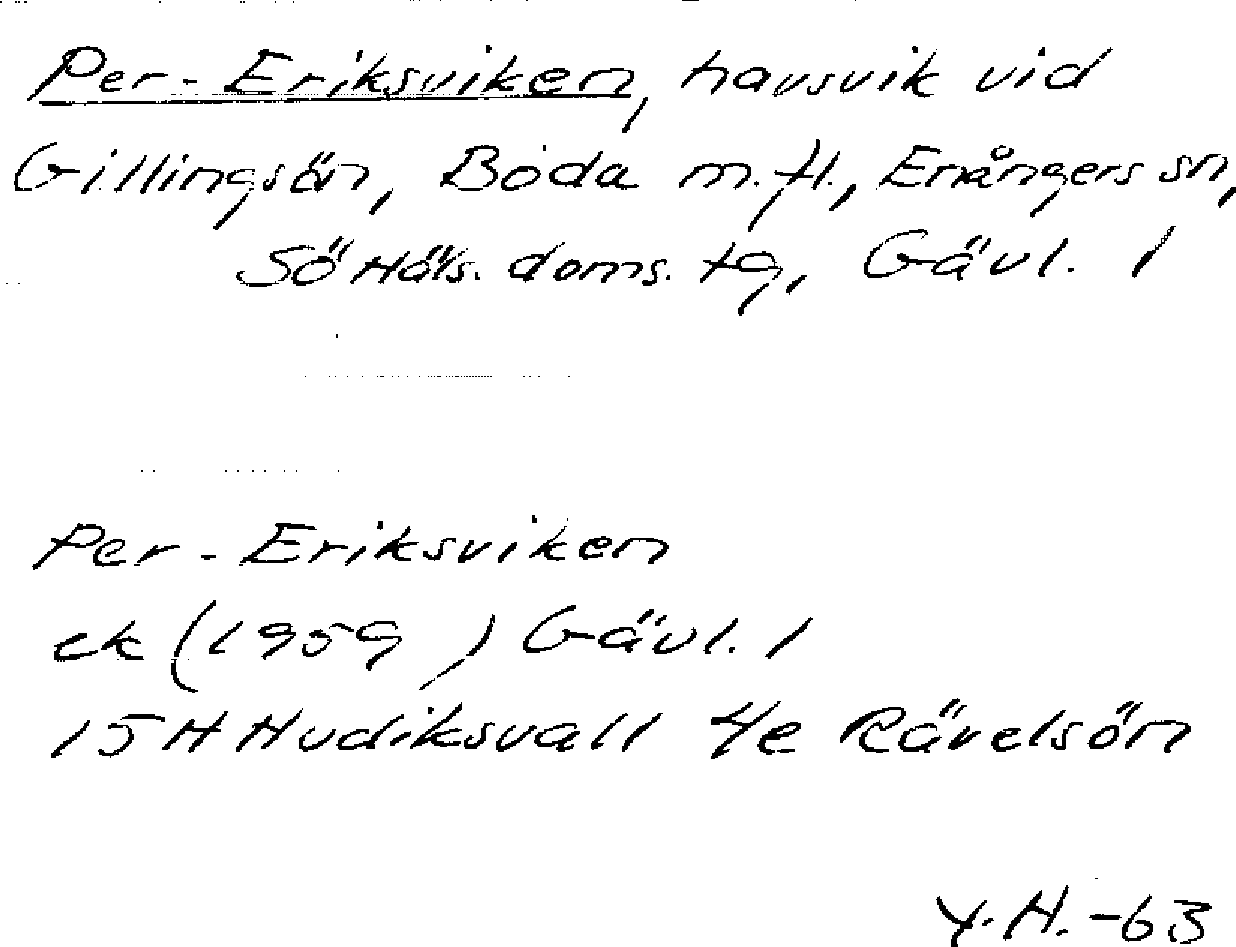 Per-Eriksviken, havsvik vid
Gillingsön, Boda m.fl., Enångers sn,
Sö Häls. doms. tg, Gävl. l
Per-Eriksviken
ek (1959 ) Gävl. l
15H Hudiksvall 4e Rävelsön
Y.H. -63